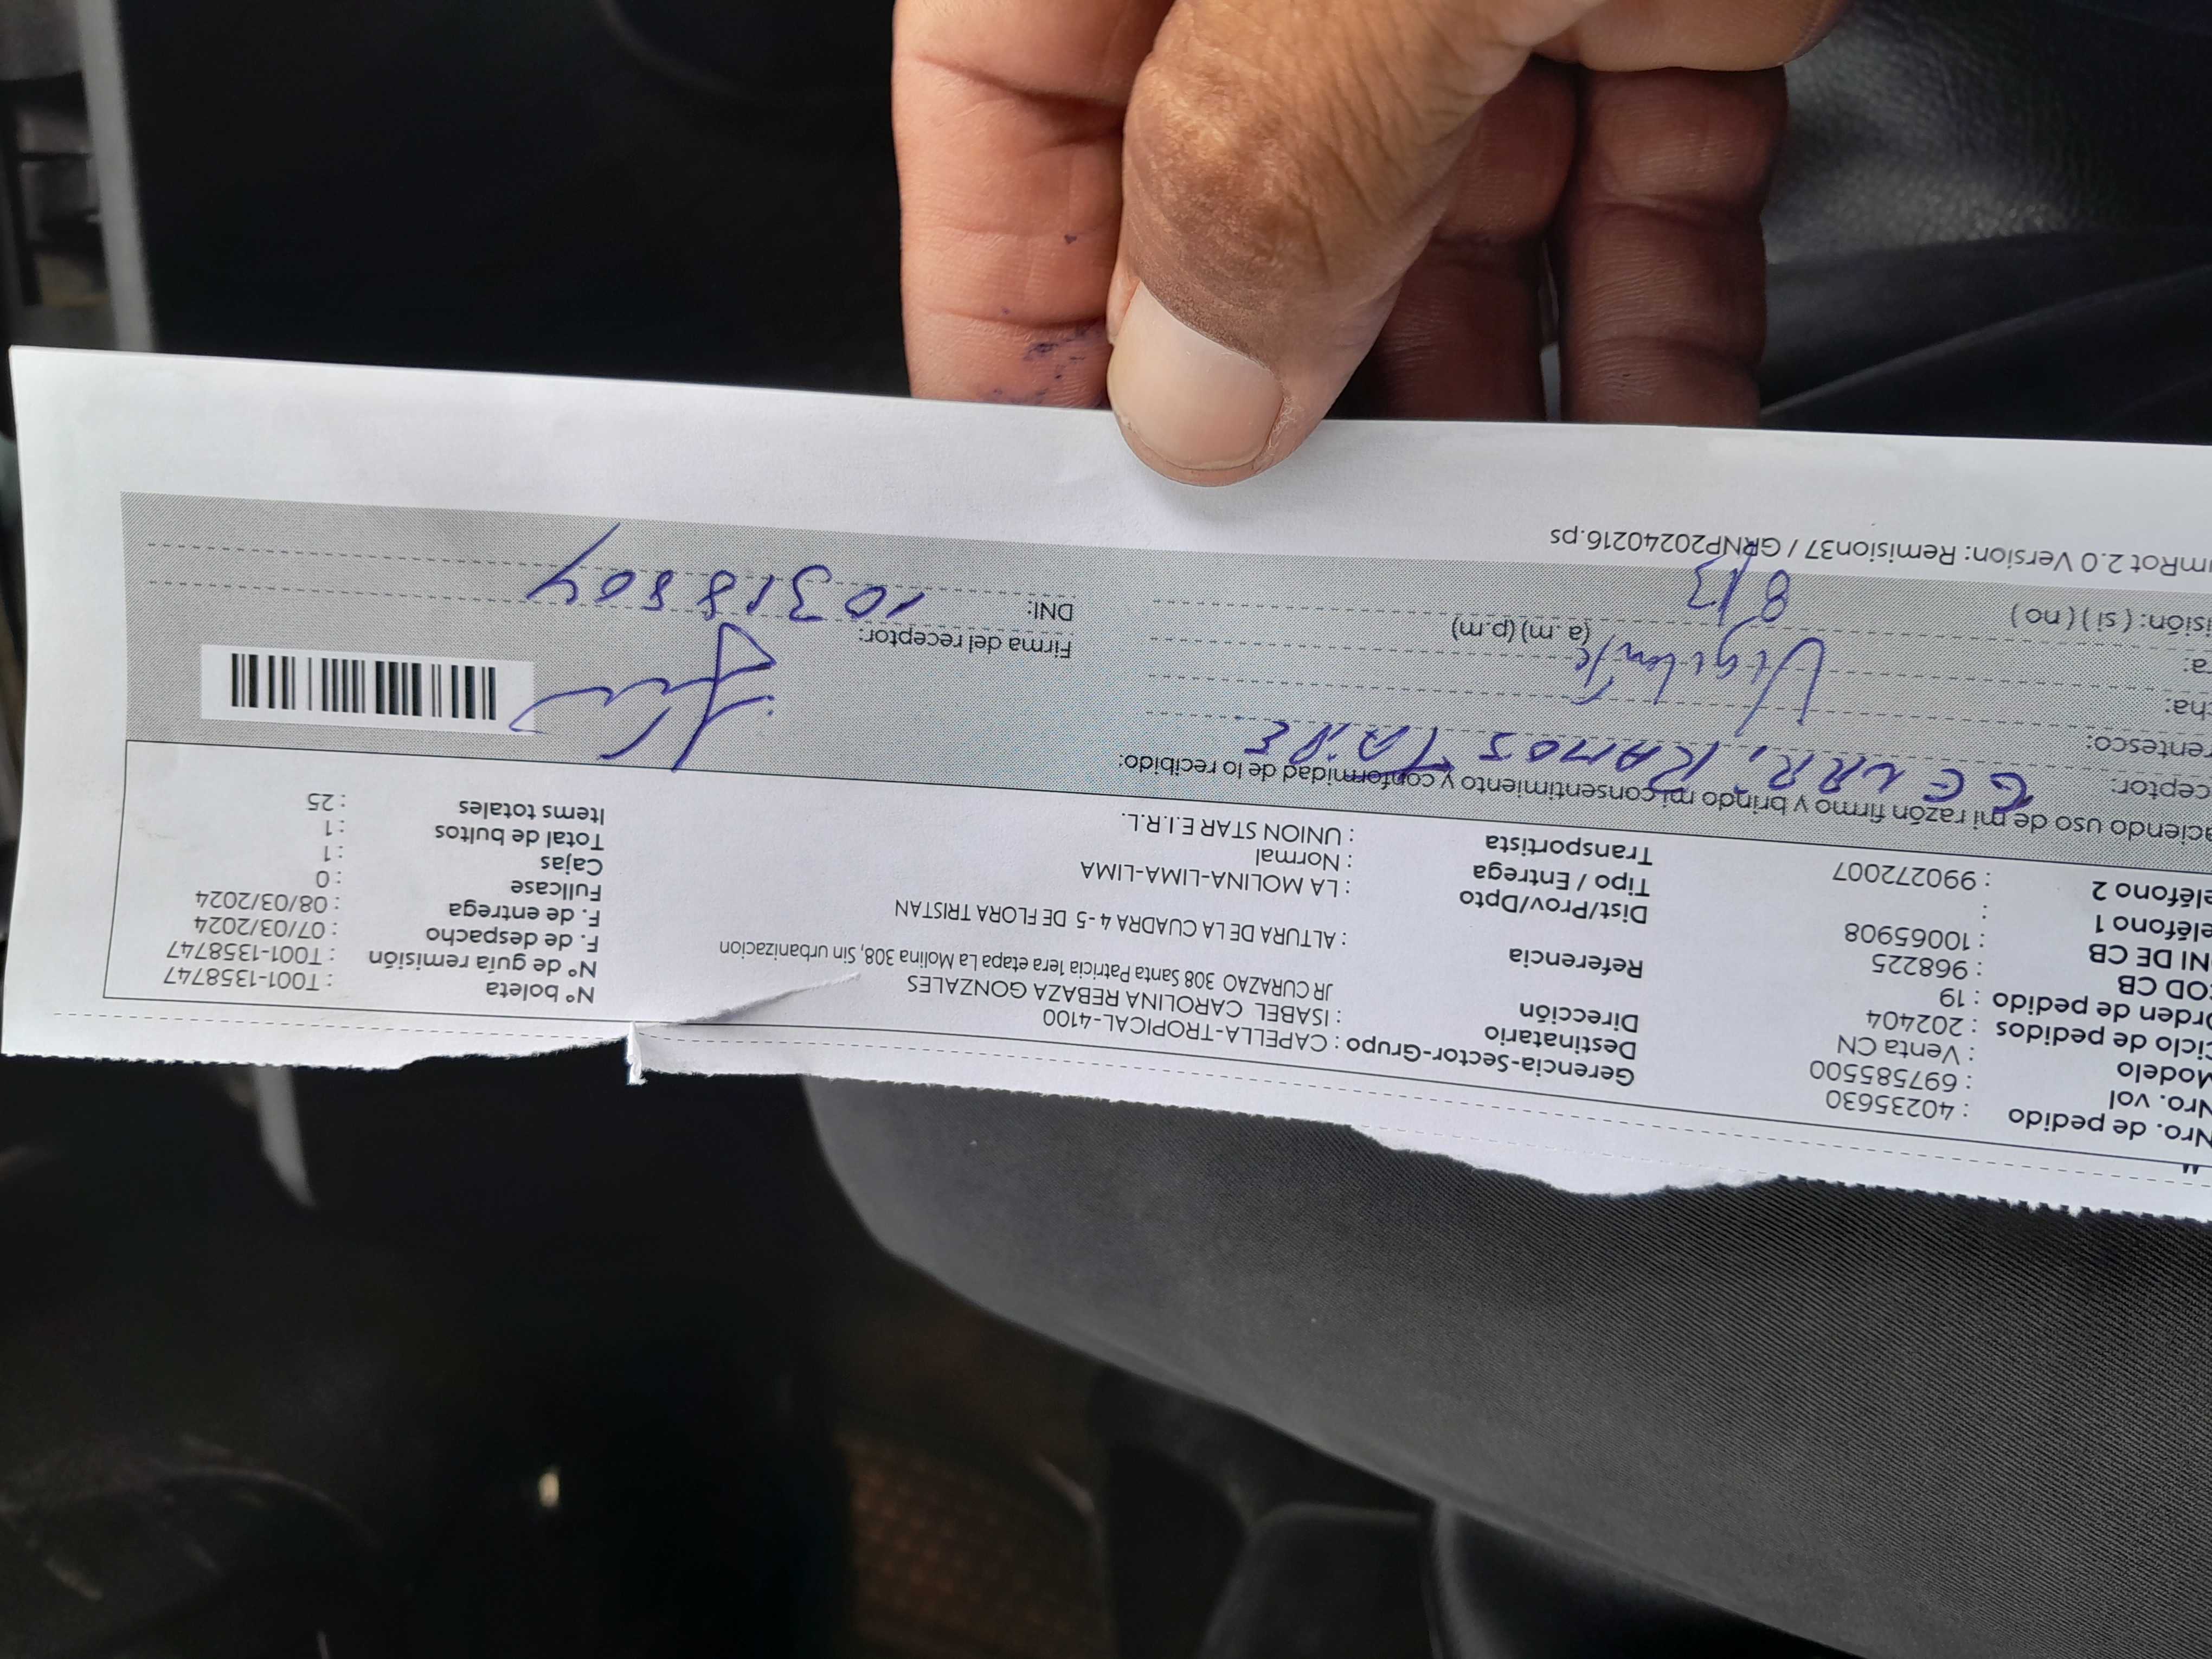 Nro. de pedido : 40235630
Nro. vol : 697585500
Modelo : Venta CN
Ciclo de pedidos : 202404
Orden de pedido : 19
COD CB : 968225
NI DE CB : 10065908
eléfono 1 :
eléfono 2 : 990272007
Gerencia-Sector-Grupo : CAPELLA-TROPICAL-4100
Destinatario : ISABEL CAROLINA REBAZA GONZALES
Dirección JR CURAZAO 308 Santa Patricia 1era etapa La Molina 308, Sin urbanizacion
Referencia : ALTURA DE LA CUADRA 4-5 DE FLORA TRISTAN
Dist/Prov/Dpto : LA MOLINA-LIMA-LIMA
Tipo / Entrega : Normal
Transportista : UNION STAR E.I.R.L.
Nº boleta : T001-1358747
Nº de guía remisión : T001-1358747
F. de despacho : 07/03/2024
F. de entrega : 08/03/2024
Fullcase : 0
Cajas : 1
Total de bultos : 1
Items totales : 25
aciendo uso de mi razón firmo y brindo mi consentimiento y conformidad de lo recibido:
ceptor: RAMOS
rentesco: Vigilante
cha: 8/3
a: (a. m) (p.m)
isión: ( si ) ( no )
Firma del receptor:
DNI: 10318804
mRot 2.0 Version: Remision37 / GRNP20240216.ps